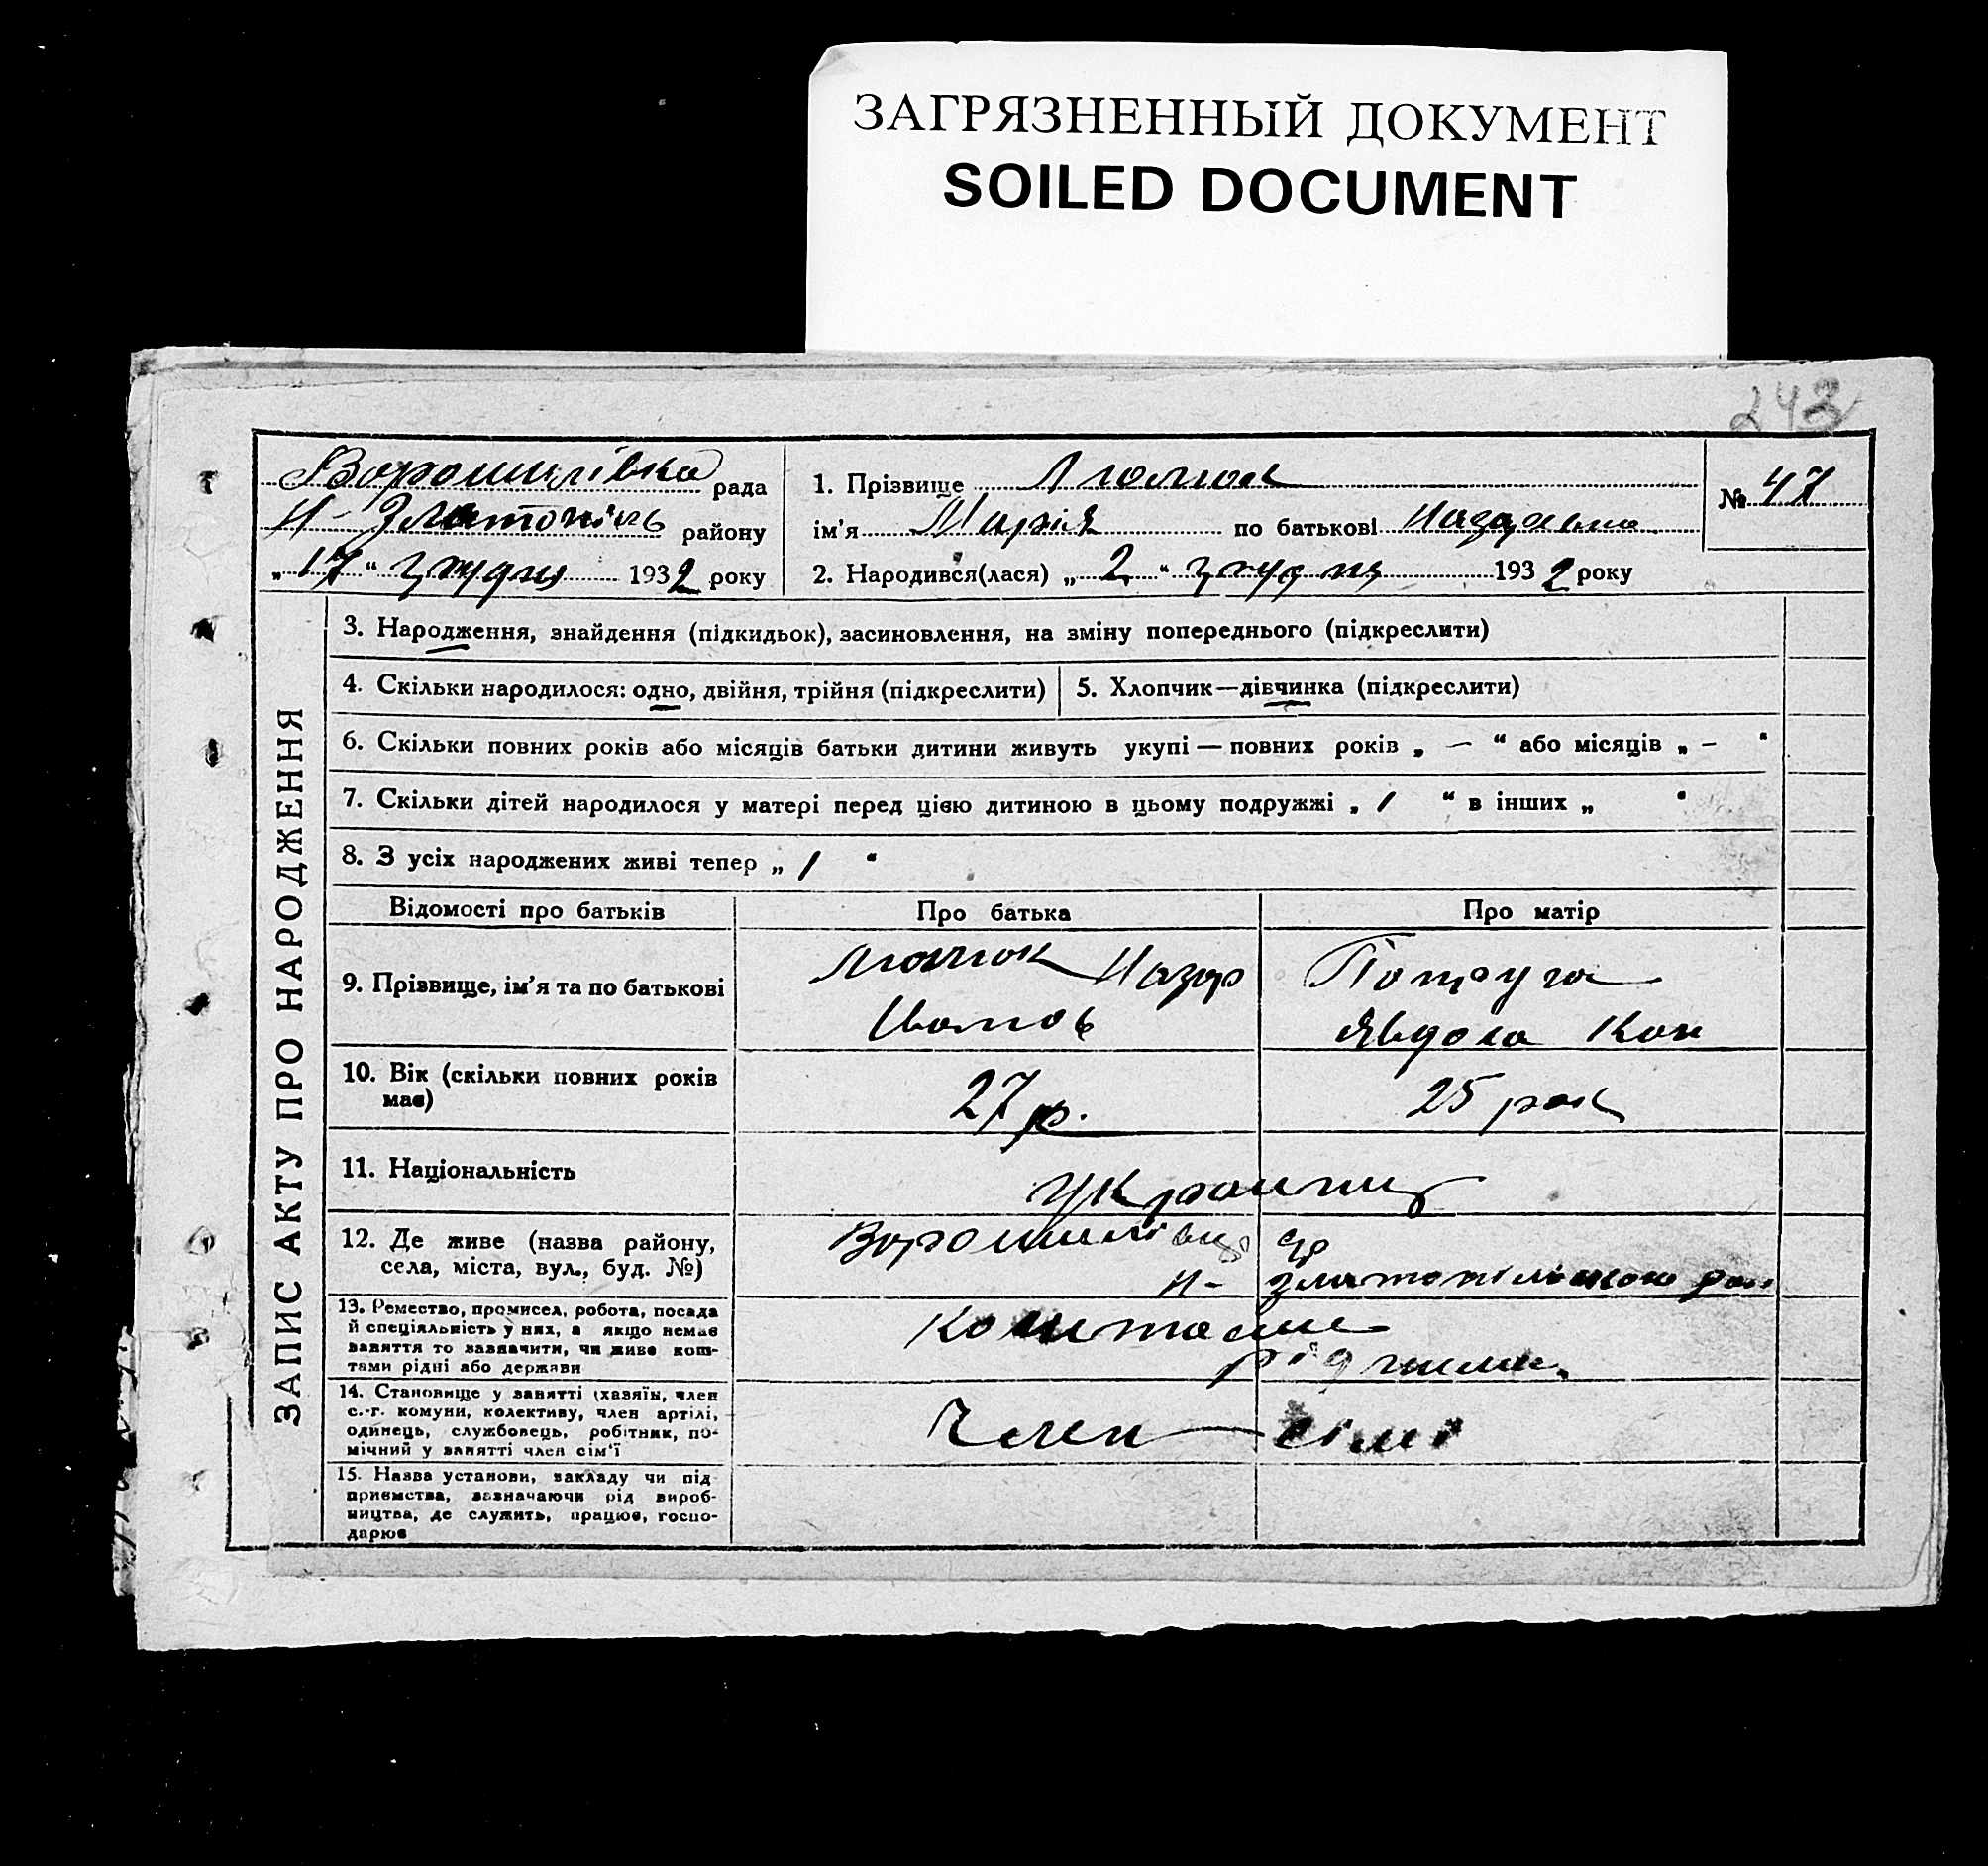 ЗАГРЯЗНЕННЫЙ ДОКУМЕНТ
SOILED DOCUMENT
243
Ворошилівка рада
Н- Златопіль району
„17“ грудня 1932 року
1. Прізвище
ім'я Марія по батькові Назарівна
2. Народився(лася) „2“ грудня 1932 року
№ 47
ЗАПИС АКТУ ПРО НАРОДЖЕННЯ
3. Народження, знайдення (підкидьок), засиновлення, на зміну попереднього (підкреслити)
4. Скільки народилося: одно, двійня, трійня (підкреслити)
5. Хлопчик—дівчинка (підкреслити)
6. Скільки повних років або місяців батьки дитини живуть укупі — повних років „ — “ або місяців „ – “
7. Скільки дітей народилося у матері перед цією дитиною в цьому подружжі „ 1 “ в інших „ “
8. З усіх народжених живі тепер „ 1 “
Відомості про батьків Про батька Про матір
9. Прізвище, ім'я та по батькові
Назар
Іванов
Потруга
Явдоха Кон
10. Вік (скільки повних років
має)
27 р.
25 рок
11. Національність
Україниц
12. Де живе (назва району,
села, міста, вул., буд. №)
Ворошилівці
Н- Златопільською рай
13. Ремество, промисел, робота, посада
й спеціяльність у них, а якщо немає
заняття то зазначити, чи живе кош-
тами рідні або держави
Коштами
рідними.
14. Становище у занятті (хазяїн, член
с.-г. комуни, колективу, член артілі,
одинець, службовець, робітник, по-
мічний у занятті член сім'ї
Член сімі
15. Назва установи, закладу чи під
приємства, зазначаючи рід вироб-
ництва, де служить, працює, госпо-
дарює